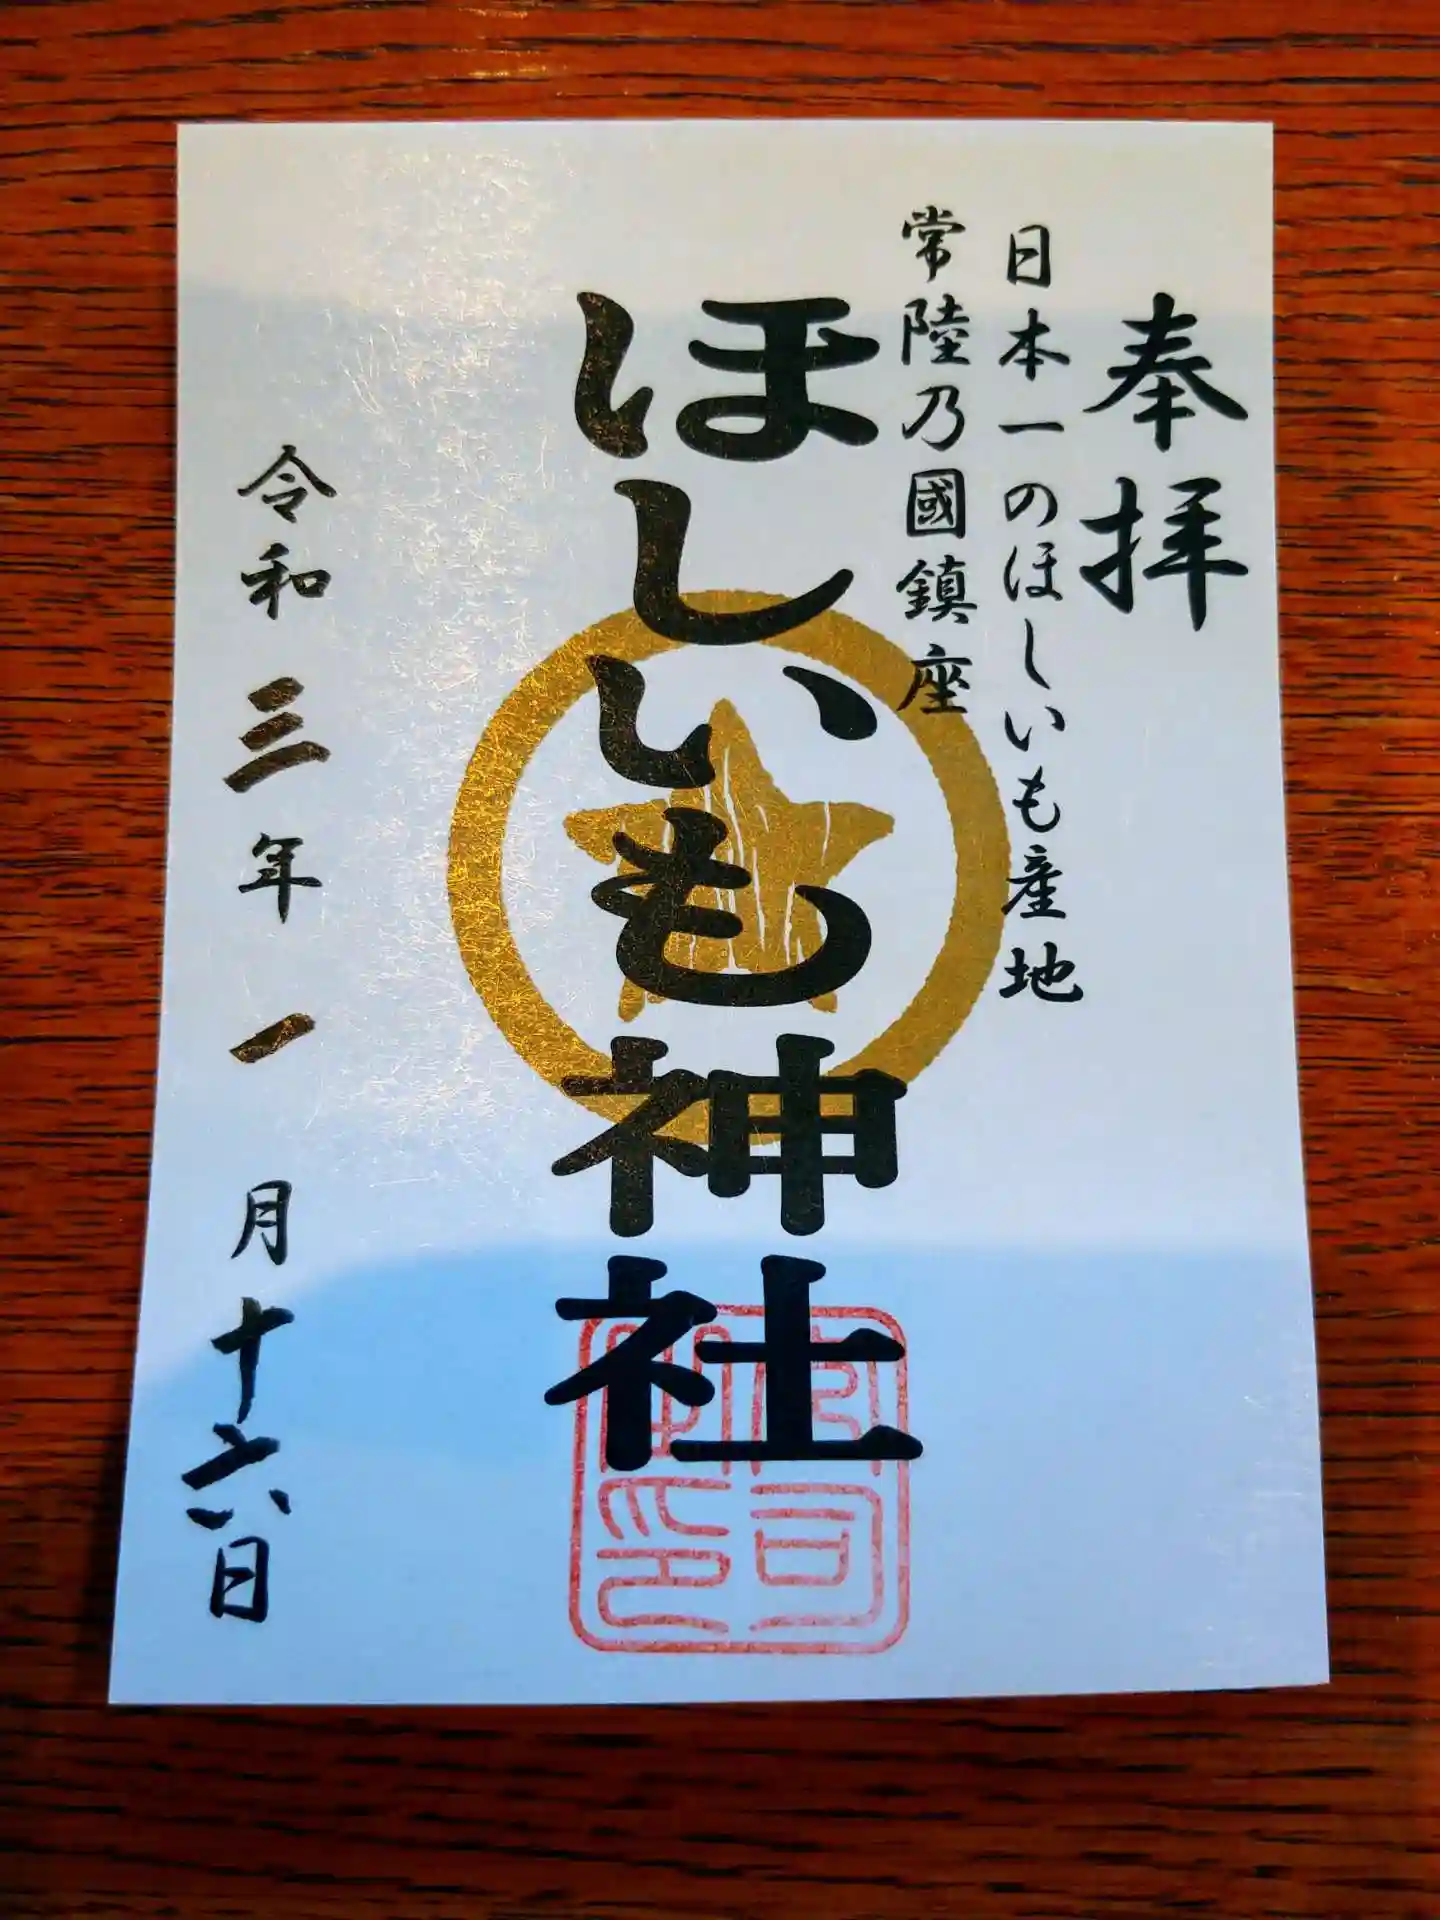 奉拝
日本一のほしいも産地
常陸乃國鎮座
ほしいも神社
令和三年一月十六日